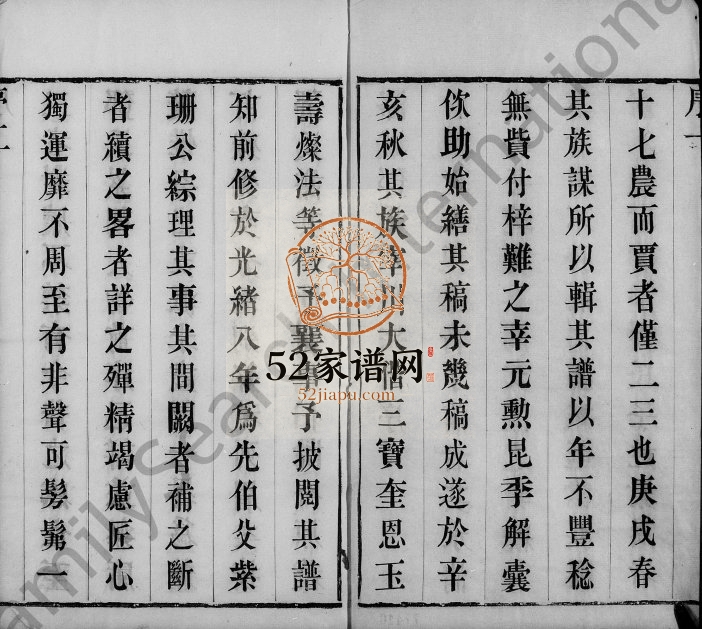 序一
十七農而賈者僅二三也庚戌春
其族謀所以輯其譜以年不豐稔
無貲付梓難之幸元勲昆季解囊
佽助始繕其稿未幾稿成遂於辛
亥秋其族大三寶奎恩玉
壽燦法等徵予襄事予披閱其譜
知前修於光緒八年爲先伯父紫
珊公綜理其事其間闕者補之斷
者續之畧者詳之殫精竭慮匠心
獨運靡不周至有非聲可髣髴一
序二
52家谱网
52jiapu.com
FamilySearch International